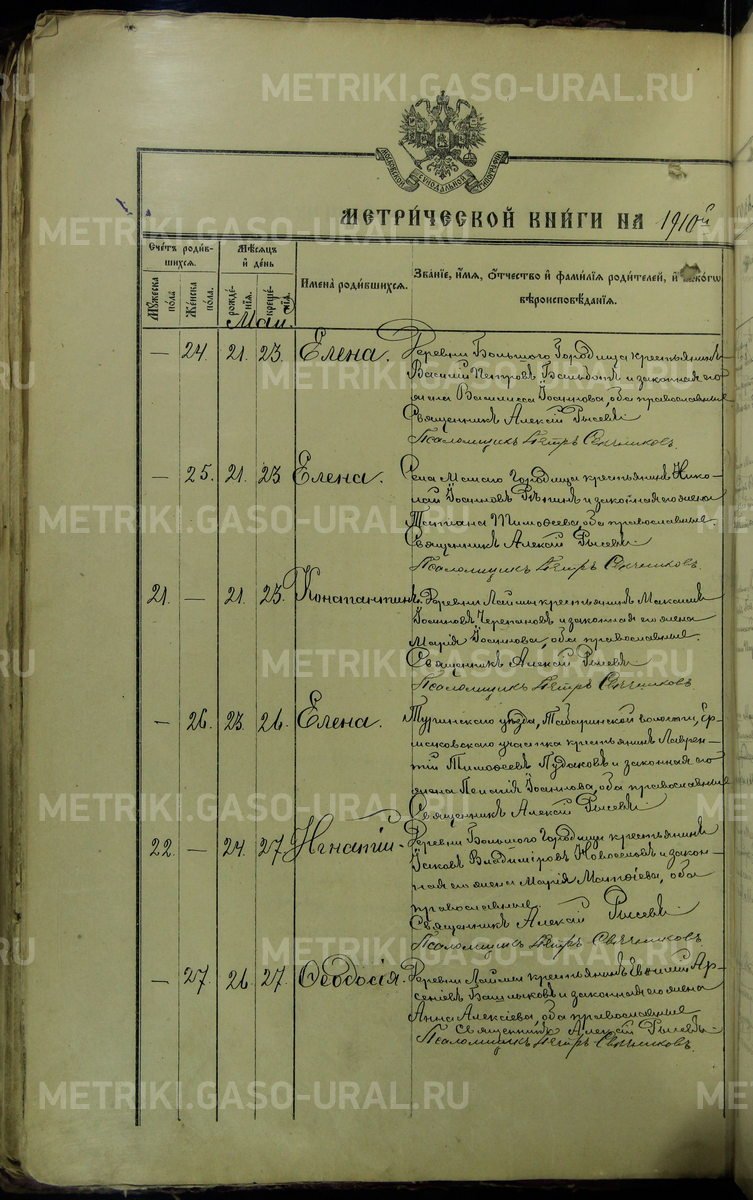 METRIKI.GASO-URAL.RU
МОСКОВСКОЙ СѴНОДАЛЬНОЙ ТИПОГРАФІИ
МЕТРИ́ЧЕСКОЙ КНИ́ГИ НА 1910й
Сче́тъ роди́вшихся.
Мѣ́сяцъ и҆ де́нь
Му́жеска по́ла.
Же́нска по́ла.
рожде́нїѧ.
креще́нїѧ.
И҆мена̀ роди́вшихсѧ.
Зва́нїе, и҆́мѧ, ѻ҆́тчество и҆ фами́лїѧ роди́телей, и҆ како́гѡ
вѣроисповѣ́данїѧ.
Май.
— 24. 21. 23. Елена. Деревни Большого Городища крестьянинъ
Василій Петровъ и законная его
жена Василисса Іоаннова, оба православные
Священникъ Алексій Рысевъ
Псаломщикъ Петръ Свѣчниковъ.
— 25. 21. 23 Елена. Села Малаго Городища крестьянинъ Нико-
лай Іоанновъ и законная его жена
Татіана Тимофеева, оба православные.
Священникъ Алексій Рысевъ
Псаломщикъ Петръ Свѣчниковъ.
21. — 21. 23. Константинъ. Деревни Лаймы крестьянинъ Максимъ
Іоанновъ Черепановъ и законная его жена
Марія Іоаннова, оба православные.
Священникъ Алексій Рысевъ
Псаломщикъ Петръ Свѣчниковъ.
— 26. 23. 26. Елена. Туринскаго уѣзда, Табаринской волости, Ер-
маковскаго участка крестьянинъ Лаврен-
тій Тимофеевъ Пудаковъ и законная его
жена Пелагія Іоаннова, оба православные
Священникъ Алексій Рысевъ
22. — 24. 27. Игнатій. Деревни Большого Городища крестьянинъ
Іаковъ Владиміровъ Новоселовъ и закон-
ная его жена Марія Матфіева, оба
православные.
Священникъ Алексій Рысевъ
Псаломщикъ Петръ Свѣчниковъ
— 27. 26. 27. Ѳеодосія. Деревни Лаймы крестьянинъ Евфимій Ар-
сеніевъ Башлыковъ и законная его жена
Анна Алексіева, оба православные
Священникъ Алексій Рысевъ
Псаломщикъ Петръ Свѣчниковъ